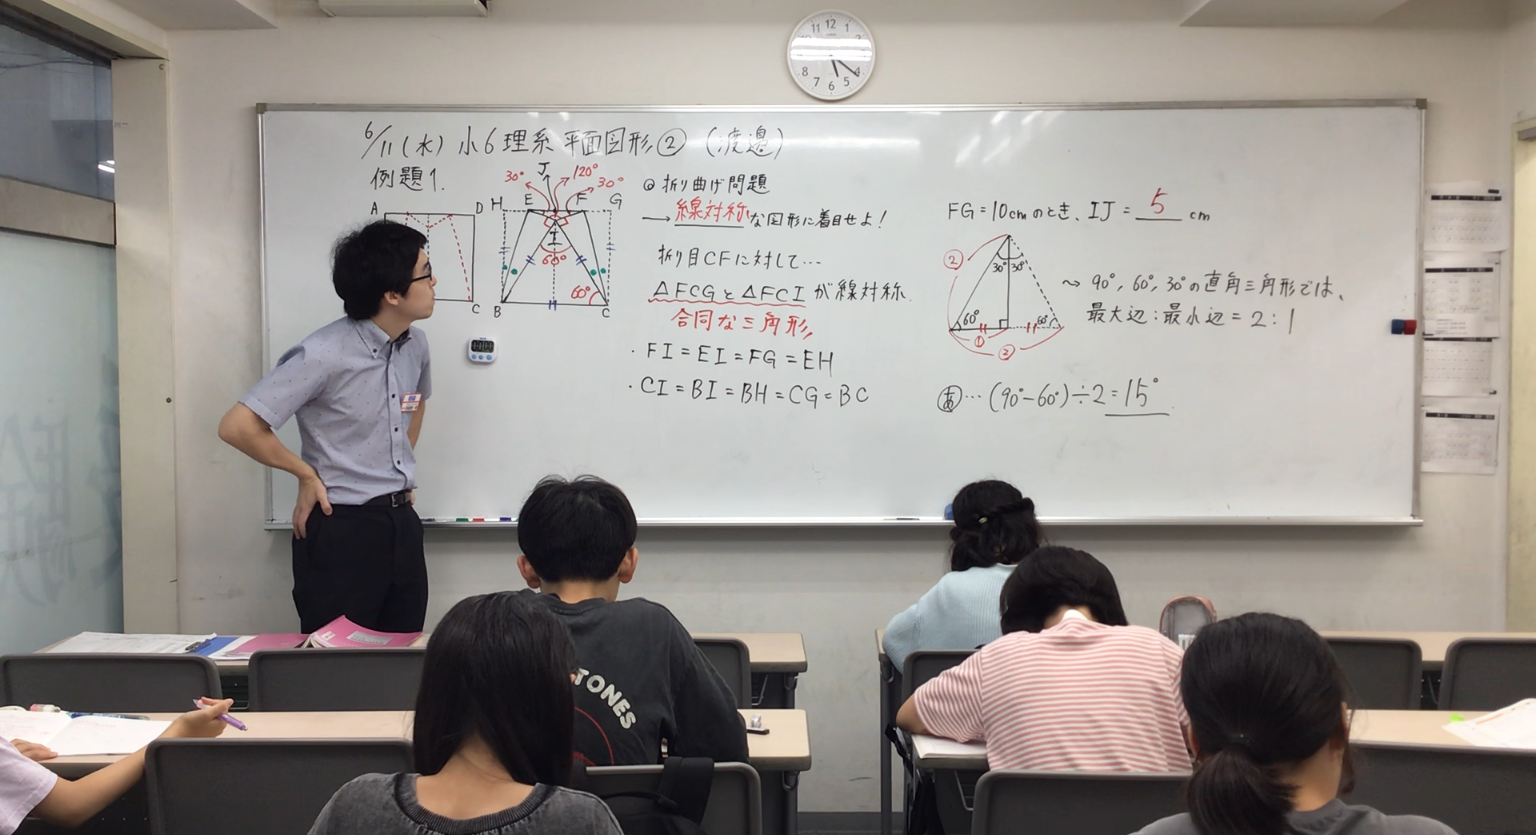 6/11(水) 小6理系 平面図形② (渡邉)
例題1.
A D
C
H E J F G
30° 120° 30°
I
60°
60°
B C
◎折り曲げ問題
→線対称な図形に着目せよ!
折り目CFに対して…
△FCGと△FCIが線対称
合同な三角形
・FI=EI=FG=EH
・CI=BI=BH=CG=BC
FG=10cmのとき、IJ=5cm
② 30° 30°
60° 60°
①
②
~90°,60°,30°の直角三角形では、
最大辺:最小辺=2:1
あ…(90°-60°)÷2=15°
11 12 1
2
8 4
7 6 5
TONES